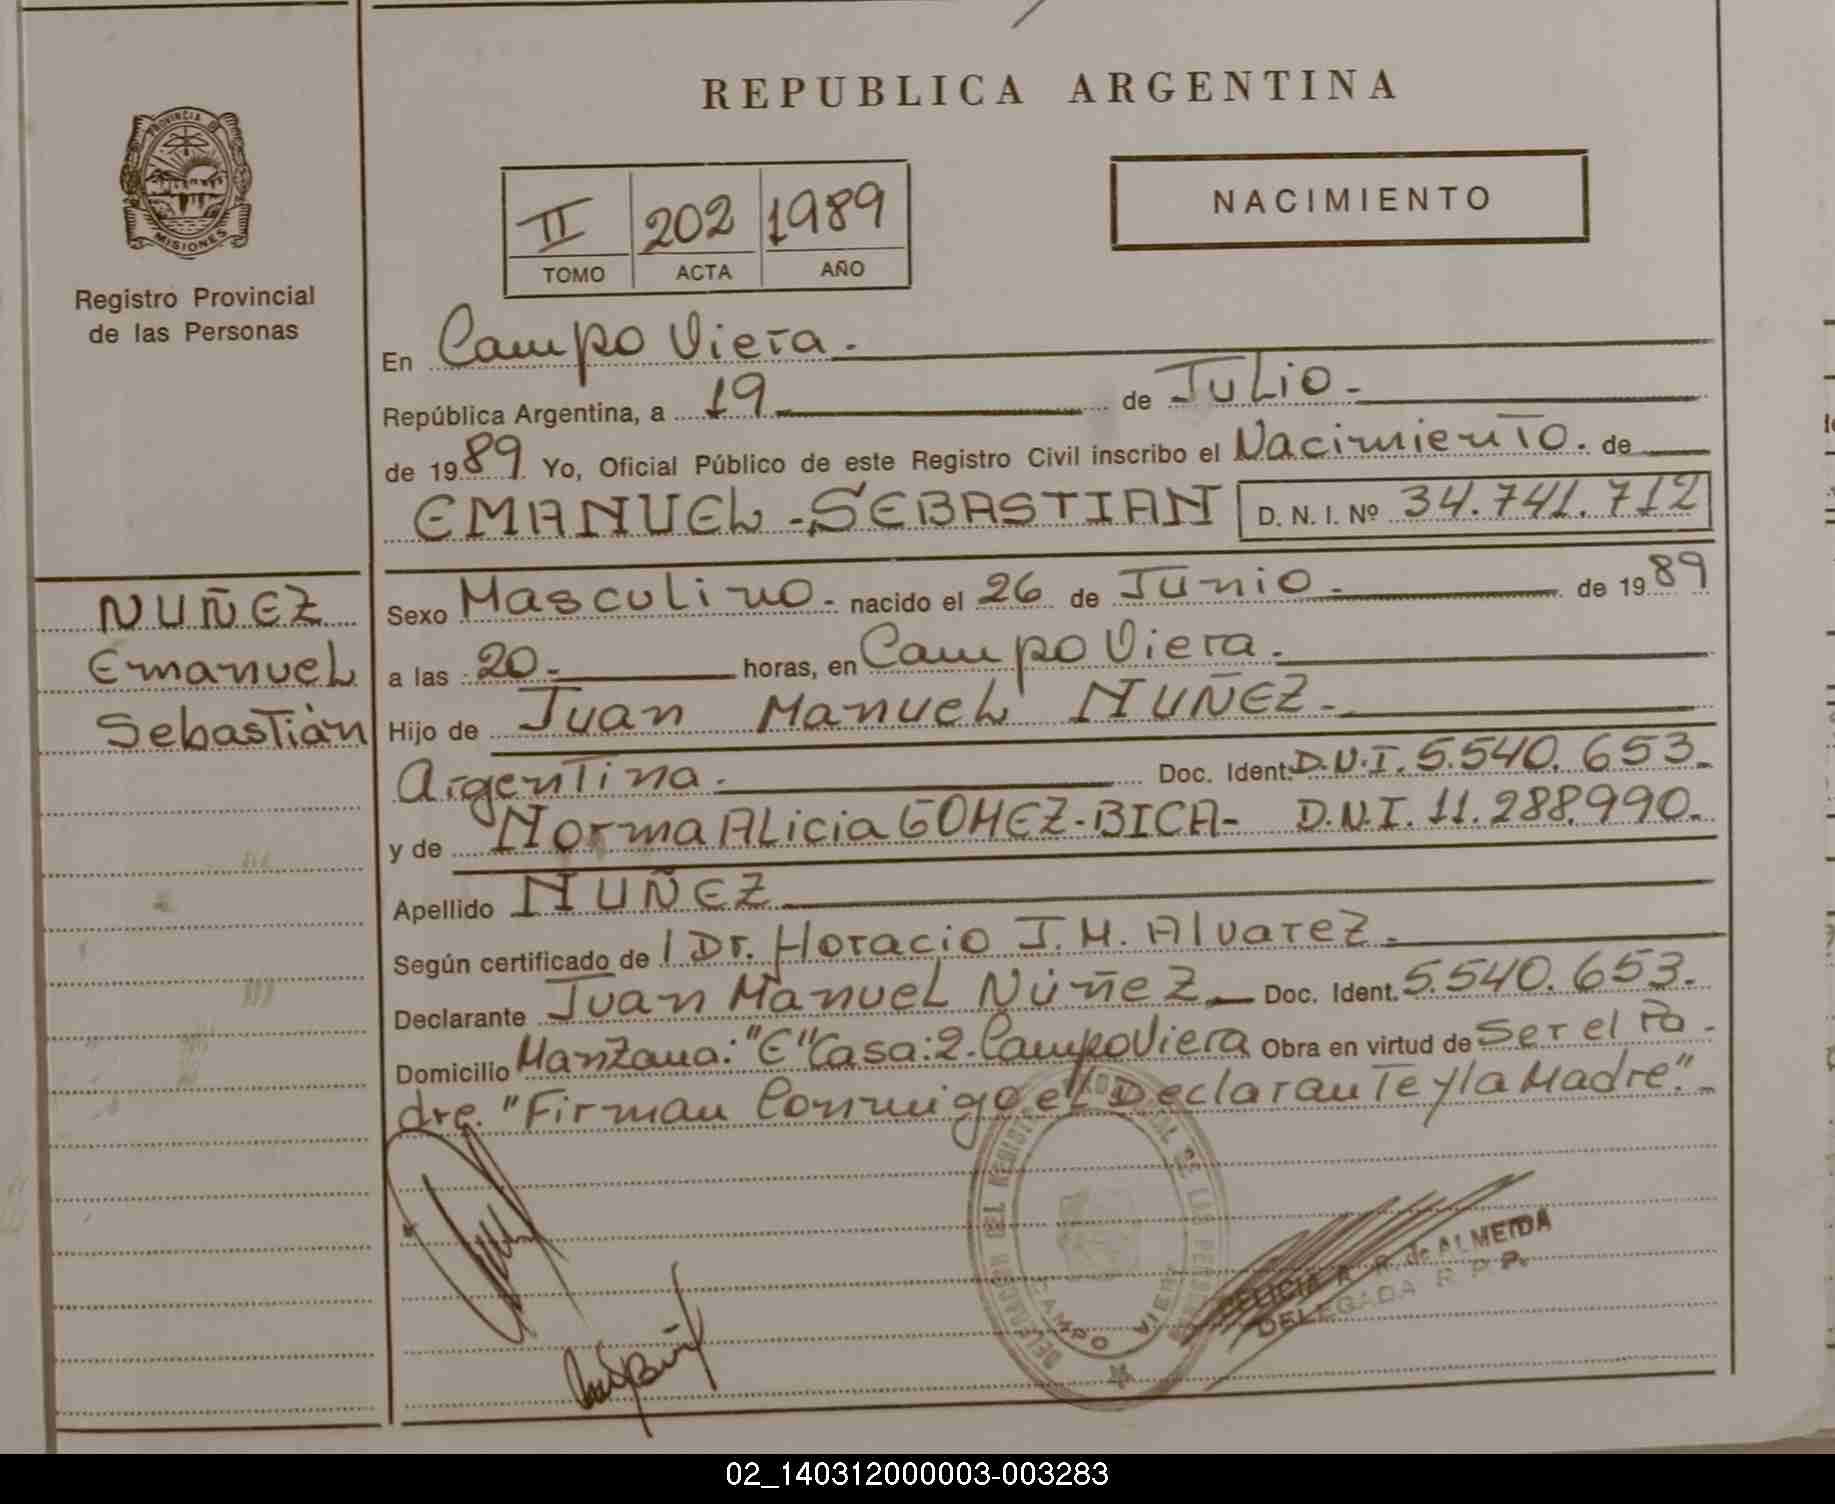 REPUBLICA ARGENTINA
PROVINCIA D
MISIONES
Registro Provincial
de las Personas
II 202 1989
TOMO ACTA AÑO
NACIMIENTO
En Campo Viera.
República Argentina, a 19 de Julio.
de 1989 Yo, Oficial Público de este Registro Civil inscribo el Nacimiento. de
EMANUEL - SEBASTIAN D. N. I. Nº 34.741.712
NUÑEZ
Emanuel
Sebastián
Sexo Masculino. nacido el 26 de Junio. de 1989
a las 20. horas, en Campo Viera.
Hijo de Juan Manuel NUÑEZ.
Argentina. Doc. Ident. D.N.I. 5.540.653.
y de Norma Alicia GOMEZ-BICA- D.N.I. 11.288.990.
Apellido NUÑEZ
Según certificado de l Dr. Horacio J. M. Alvarez.
Declarante Juan Manuel Núñez Doc. Ident. 5.540.653.
Domicilio Manzana: "E" Casa: 2. Campo Viera Obra en virtud de Ser el Pa-
dre. "Firman Conmigo el Declarante y la Madre".
DEL REGISTRO DE LAS
CAMPO VIERA
DELICIA A. R. de ALMEIDA
DELEGADA R. P. P.
02_140312000003-003283